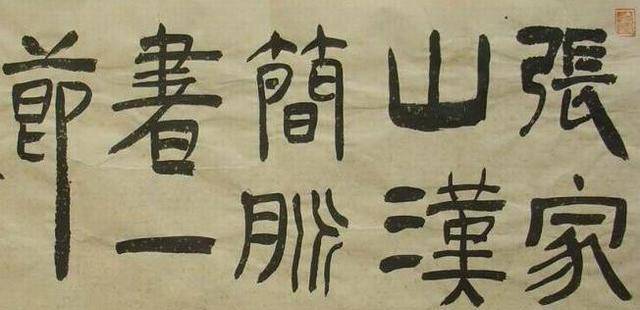 張家
山漢
簡脈
書一
節